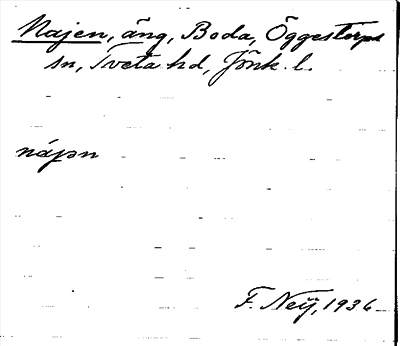 Najen, äng, Boda, Öggestorps
sn, Tveta hd, Jönk. l.
nájən
F. Neij, 1936